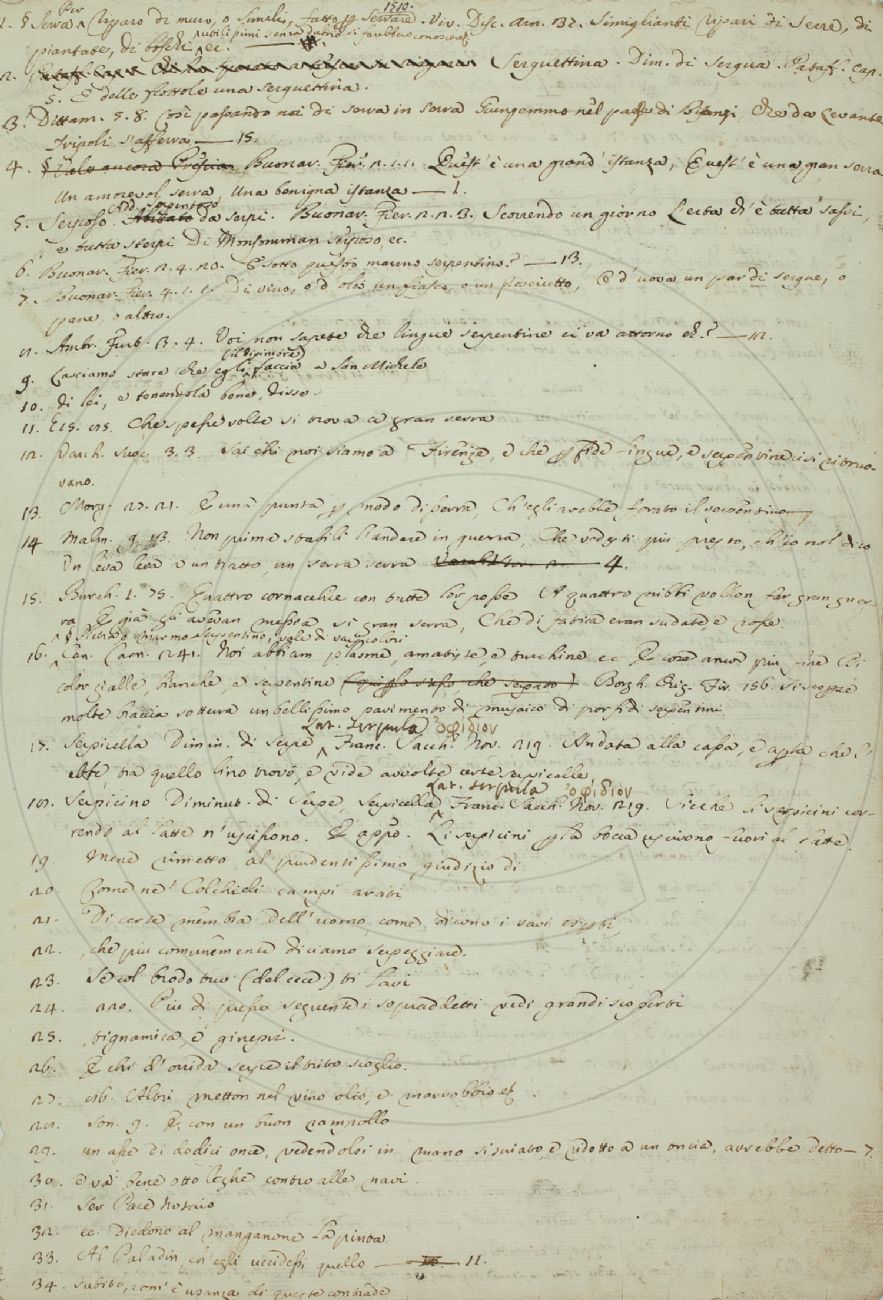 1510.
1. § Serra Per riparo di muro, o simili, fatto per serrare. Viv. Disc. Arn. 132. Simiglianti ripari di serre, di
piantate, di boschi ec.
2. Serguettina. Dim. di Sergua. Pataff. cap.
5. E delle frottole una serguettina.
3. Dittam. 5. 8. Così passando noi di serra in serra Giungemmo nel paese di, Che da Levante
Tripoli s'afferra — 15.
4. Buonar. Fier. 2. 1. 1. Quest' è una grand' istanza, Quest' è una gran serra
Un amorevol serra, Una benigna istanza — 1.
5. Serposo. Add. serpentoso da serpi. Buonar. Fier. 2. 2. 3. Scorrendo un giorno L'erta ch' è tutta sassi,
e tutta sterpi Di Monsumman serposo, ec.
6. Buonar. Fier. 2. 4. 20. E sotto questo marmo serpentino? — 13.
7. Buonar. Fier. 4. 1. 1. Di vino, o d' olio un fiasco, o un prosciutto, E d' uova un par di serque, o
pane, o altro.
8. Ambr. Furt. 3. 4. Voi non sapete che lingue serpentine ci va attorno eh? — 12.
9. Lasciamo stare che egli (il dipintore) faccia a San Michele
10. di lei, e tenendola bene, disse.
11. Che spesse volte si trova a gran serra
12. Varch. Suoc. 3. 3. Sai chi noi siamo a Firenze, e che perfide lingue, e serpentine ci si ritruo-
vano.
13. Morg. 27. 21. E una punta, per modo disserra, Ch'egli arebbe forato il serpentino
14. Malm. 9. 13. Non prima stabilì l'andare in guerra, Che vedesti più presto, ch'io nol dico
Un leva leva a un tratto, un serra serra — 4.
15. Burch. 1. 75. Quattro cornacchie con tutte lor posse A quattro nibbi vollon far gran guer-
ra E già gli avevan messa sì gran serra, Che di fatica eran sudate, e rosse.
16. § Pietra o marmo serpentino, vale di varj colori
Cant. Carn. 241. Noi abbiam plasme, amatiste, e turchine ec. E cose ancor più fine Di
color gialle, bianche, e serpentine Borgh. Orig. Fir. 156. Si scopre
molte braccia sotterra un bellissimo pavimento di musaico di porfidi serpentini
17. Serpicella Dimin. di serpe Lat. serpula ὀφίδιον Franc. Sacch. Nov. 219. Andata alla capa, e aperta che l'
ebbe, tra quello lino trovò, e vide avvolte certe serpicelle
18. Serpicino Diminut. di serpe, serpicella Lat. serpula ὀφίδιον Franc. Sacch. Nov. 219. Sicchè li serpicini cor-
rendo al latte n'uscissono. E appo. Li serpicini per la bocca uscirono fuori al latte.
19. Mene rimetto al prudentissimo giudizio di
20. Come ne' Colchicli campi arati
21. Di certe membra dell' uomo, come dicono i savi esperti
22. , che più comunemente diciamo serpeggiare.
23. Se col brodo suo (del cece) ti lavi
24. 220. Più di presso seguenti i sopraddetti vedi grandi scoperti
25. , tignamica, e ginepri.
26. E chi d' onida serpe il trito scoglio.
27. Altri metton nel vino olio, e marrobbio ec.
28. Son. 9. E con un buon rampollo
29. un asse di dodici once, vedendolsi in mano sì svisato, e ridotto a un oncia, avrebbe detto — 7.
30. e va bene otto leghe contro alle navi.
31. Ser Pace Notaio
32. ec. diedono al manganone la pinta
33. Al Paladin, ch' egli uccidessi quello — 11.
34. Subito, com' è usanza di queste contrade